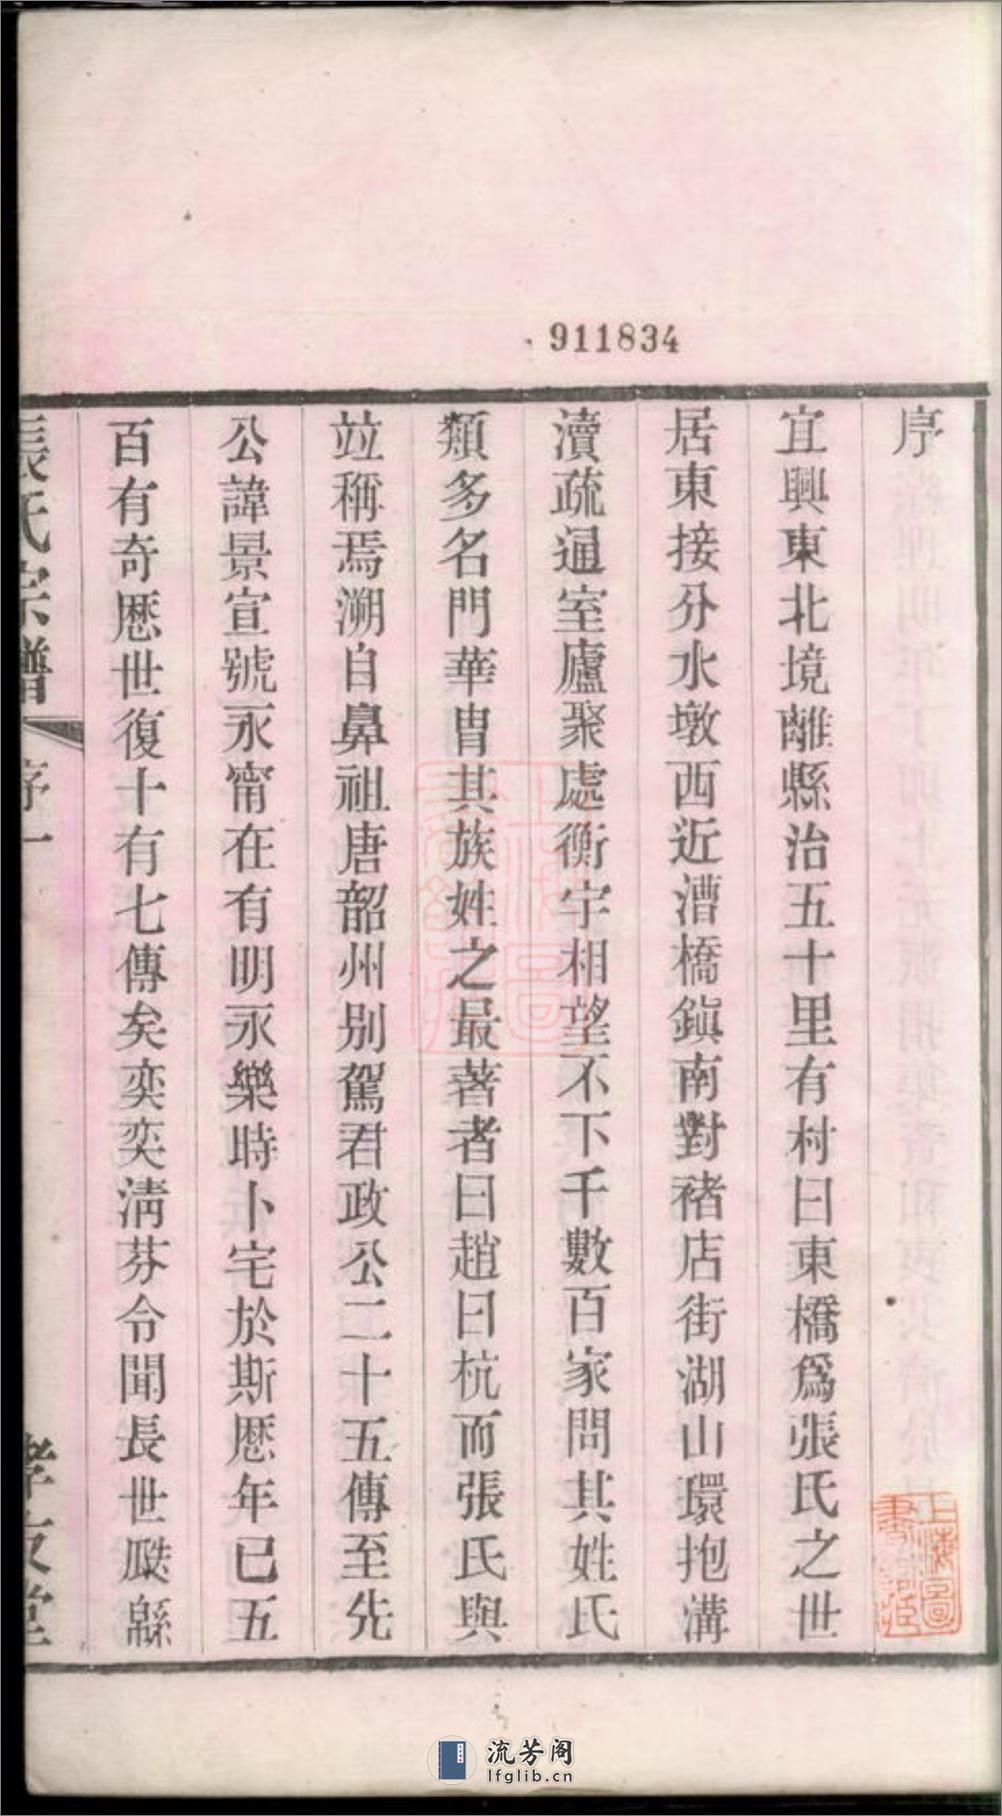 911834
序
宜興東北境離縣治五十里有村曰東橋爲張氏之世
居東接分水墩西近漕橋鎭南對褚店街湖山環抱溝
瀆疏通室廬聚處衡宇相望不下千數百家問其姓氏
類多名門華胄其族姓之最著者曰趙曰杭而張氏與
竝稱焉溯自鼻祖唐韶州別駕君政公二十五傳至先
公諱景宣號永甯在有明永樂時卜宅於斯歷年已五
百有奇歷世復十有七傳矣奕奕淸芬令聞長世瓞緜
張氏宗譜 序 一 孝友堂
上海圖書館藏
上海圖書館藏
流芳阁
lfglib.cn